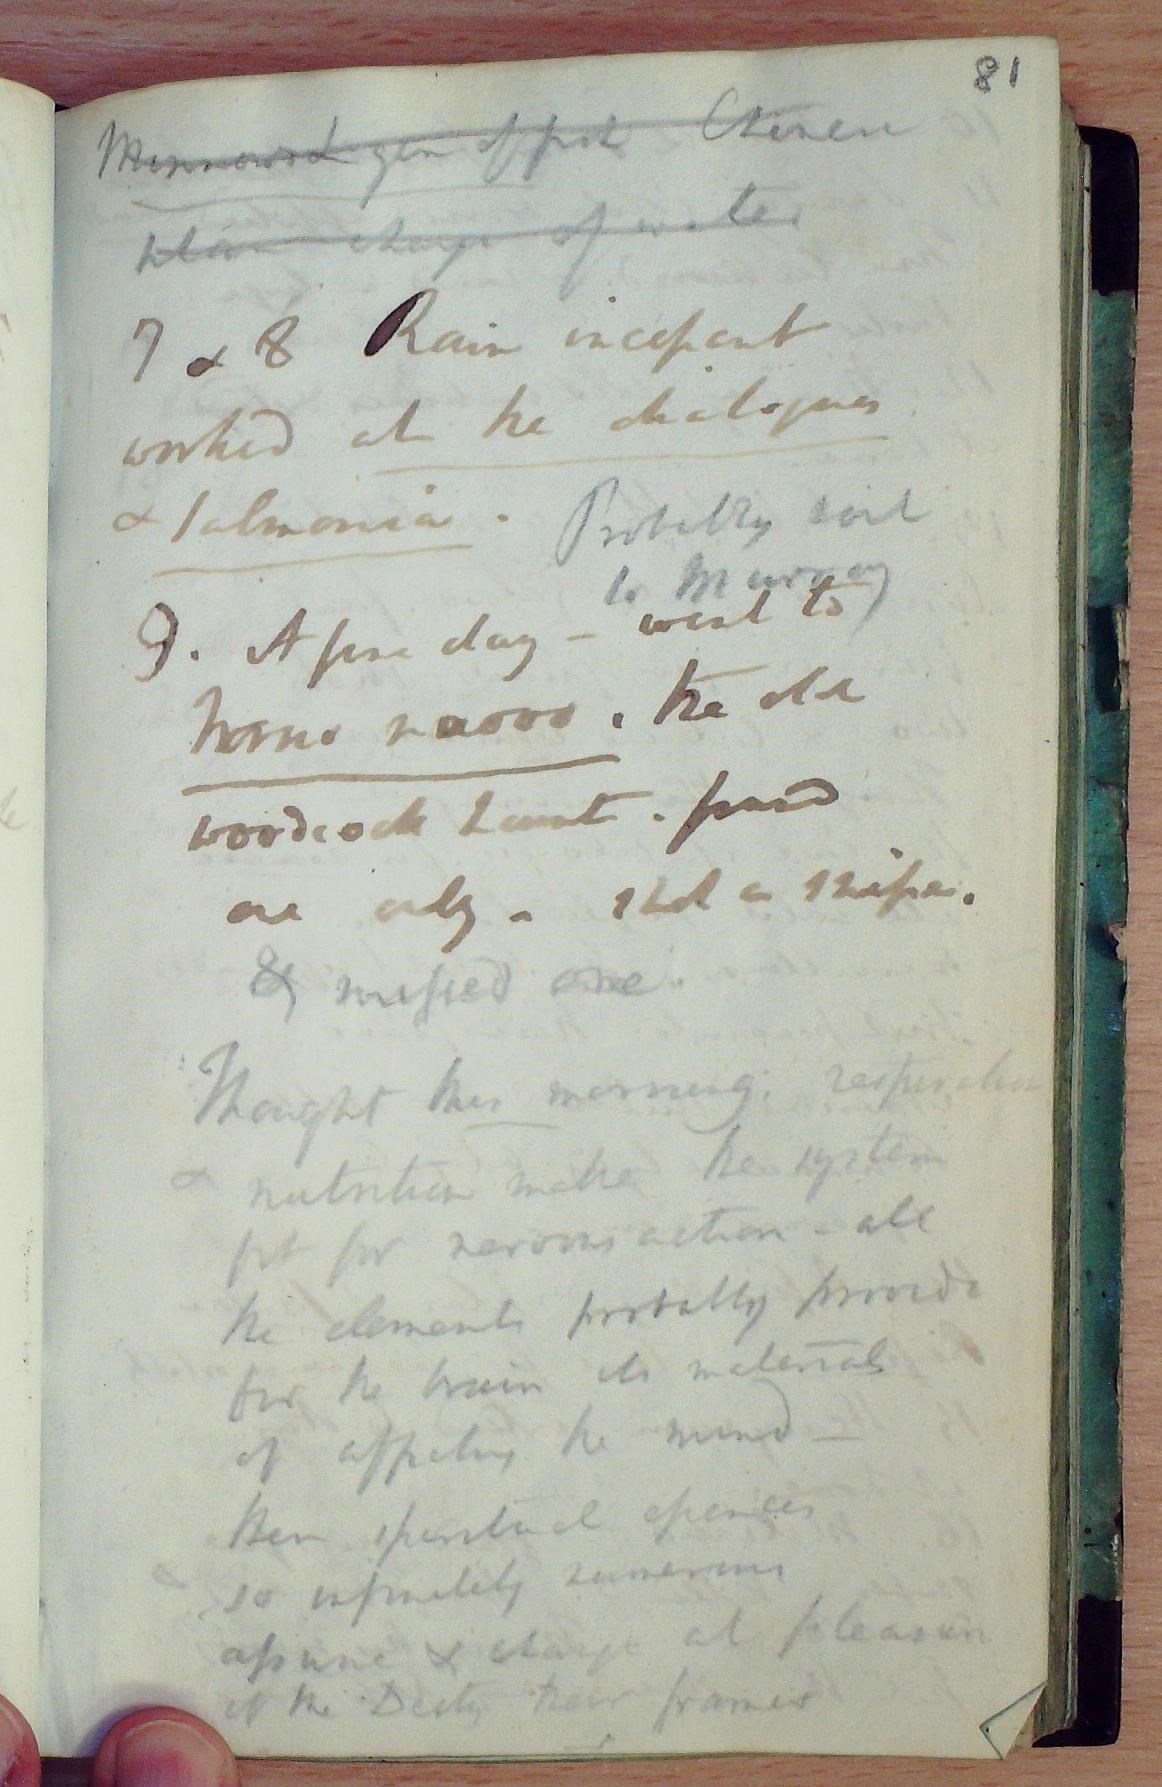 81
gen of fish Chinese
change of water
7 & 8 Rain incessant
worked at the dialogues
& Salmonia. Probably send
to Murray
9. A fine day – went to
. the old
woodcock haunt. found
one only – shot a snipe.
& missed one.
Thought this morning. respiration
& nutrition make the system
fit for nervous action – all
the elements probably provide
for the brain its materials
of affecting the mind –
then spiritual essences
& so infinitely numerous
assume & change at pleasure
of the Deity their frames